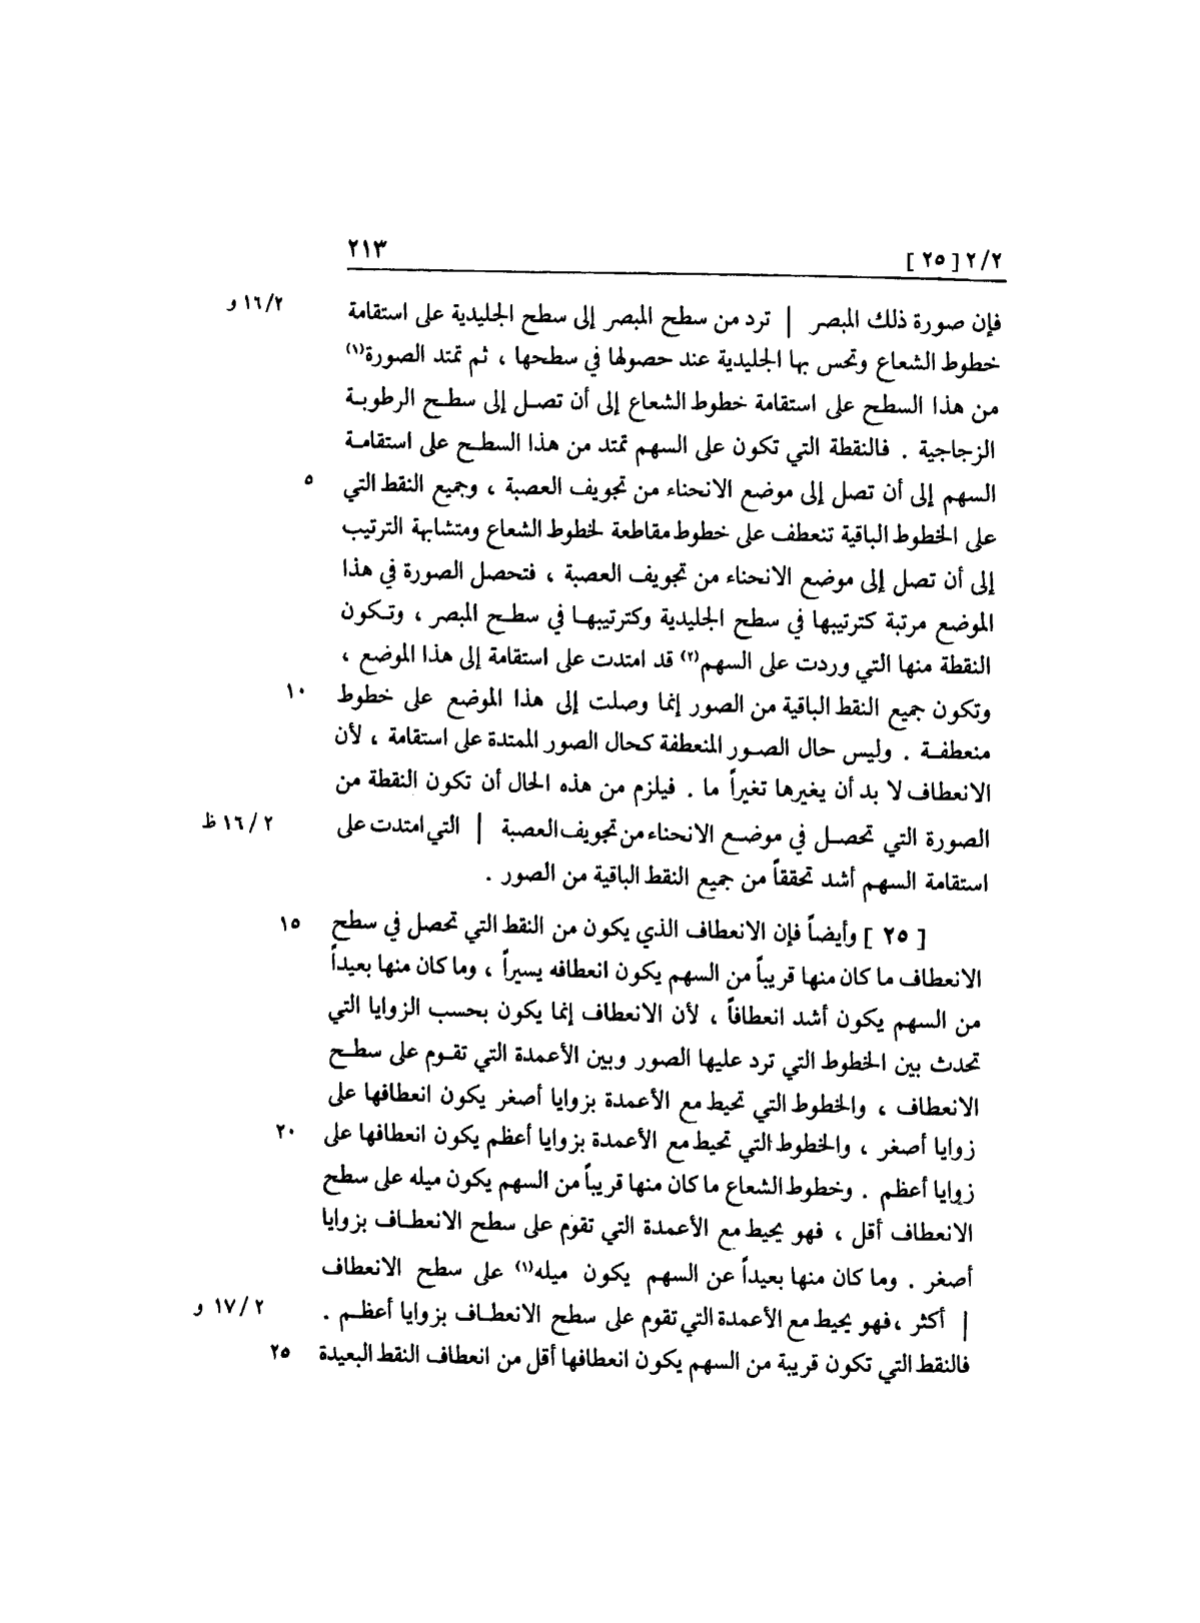 ٢/٢ [ ٢٥ ] ٢١٣
فإن صورة ذلك المبصر | ترد من سطح المبصر إلى سطح الجليدية على استقامة ١٦/٢ و
خطوط الشعاع وتحس بها الجليدية عند حصولها في سطحها ، ثم تمتد الصورة(١)
من هذا السطح على استقامة خطوط الشعاع إلى أن تصـل إلى سطـح الرطوبـة
الزجاجية . فالنقطة التي تكون على السهم تمتد من هذا السطـح على استقامـة
السهم إلى أن تصل إلى موضع الانحناء من تجويف العصبة ، وجميع النقط التي ٥
على الخطوط الباقية تنعطف على خطوط مقاطعة لخطوط الشعاع ومتشابهة الترتيب
إلى أن تصل إلى موضع الانحناء من تجويف العصبة ، فتحصل الصورة في هذا
الموضع مرتبة كترتيبها في سطح الجليدية وكترتيبهـا في سطـح المبصر ، وتـكون
النقطة منها التي وردت على السهم(٢) قد امتدت على استقامة إلى هذا الموضع ،
وتكون جميع النقط الباقية من الصور إنما وصلت إلى هذا الموضع على خطوط ١٠
منعطفـة . وليس حال الصـور المنعطفة كحال الصور الممتدة على استقامة ، لأن
الانعطاف لا بد أن يغيرها تغيراً ما . فيلزم من هذه الحال أن تكون النقطة من
الصورة التي تحصـل في موضـع الانحناء من تجويف العصبة | التي امتدت على ١٦/٢ ظ
استقامة السهم أشد تحققاً من جميع النقط الباقية من الصور .
[ ٢٥ ] وأيضاً فإن الانعطاف الذي يكون من النقط التي تحصل في سطح ١٥
الانعطاف ما كان منها قريباً من السهم يكون انعطافه يسيراً ، وما كان منها بعيداً
من السهم يكون أشد انعطافاً ، لأن الانعطاف إنما يكون بحسب الزوايا التي
تحدث بين الخطوط التي ترد عليها الصور وبين الأعمدة التي تقـوم على سطـح
الانعطاف ، والخطوط التي تحيط مع الأعمدة بزوايا أصغر يكون انعطافها على
زوايا أصغر ، والخطوط التي تحيط مع الأعمدة بزوايا أعظم يكون انعطافها على ٢٠
زوايا أعظم . وخطوط الشعاع ما كان منها قريباً من السهم يكون ميله على سطح
الانعطاف أقل ، فهو يحيط مع الأعمدة التي تقوم على سطح الانعطـاف بزوايا
أصغر . وما كان منها بعيداً عن السهم يكون ميله(١) على سطح الانعطاف
| أكثر ، فهو يحيط مع الأعمدة التي تقوم على سطح الانعطـاف بزوايا أعظـم . ١٧/٢ و
فالنقط التي تكون قريبة من السهم يكون انعطافها أقل من انعطاف النقط البعيدة ٢٥